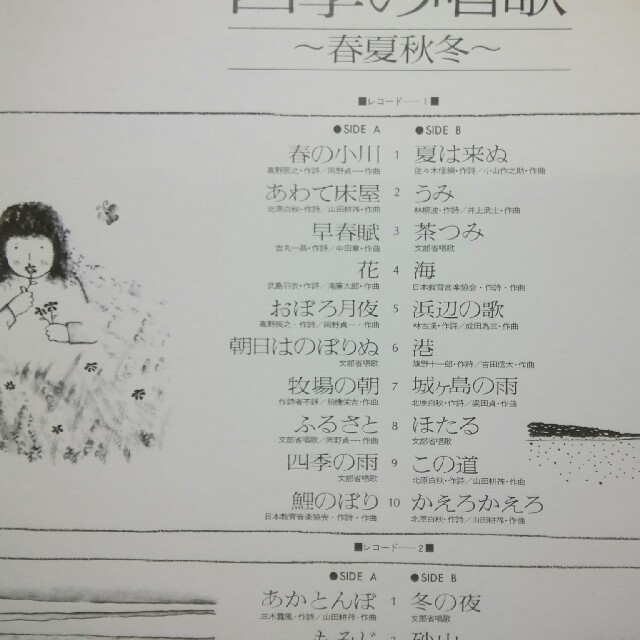 四季の唱歌
〜春夏秋冬〜
■レコード——1■
●SIDE A ●SIDE B
春の小川 1 夏は来ぬ
高野辰之・作詩／岡野貞一・作曲 佐々木信綱・作詩／小山作之助・作曲
あわて床屋 2 うみ
北原白秋・作詩／山田耕筰・作曲 林柳波・作詩／井上武士・作曲
早春賦 3 茶つみ
吉丸一昌・作詩／中田章・作曲 文部省唱歌
花 4 海
武島羽衣・作詩／滝廉太郎・作曲 日本教育音楽協会・作詩・作曲
おぼろ月夜 5 浜辺の歌
高野辰之・作詩／岡野貞一・作曲 林古渓・作詩／成田為三・作曲
朝日はのぼりぬ 6 港
文部省唱歌 旗野十一郎・作詩／吉田信太・作曲
牧場の朝 7 城ヶ島の雨
作詩者不詳／船橋栄吉・作曲 北原白秋・作詩／梁田貞・作曲
ふるさと 8 ほたる
文部省唱歌／岡野貞一・作曲 文部省唱歌
四季の雨 9 この道
文部省唱歌 北原白秋・作詩／山田耕筰・作曲
鯉のぼり 10 かえろかえろ
日本教育音楽協会・作詩・作曲 北原白秋・作詩／山田耕筰・作曲
■レコード——2■
●SIDE A ●SIDE B
あかとんぼ 1 冬の夜
三木露風・作詩／山田耕筰・作曲 文部省唱歌
もみじ 2 砂山